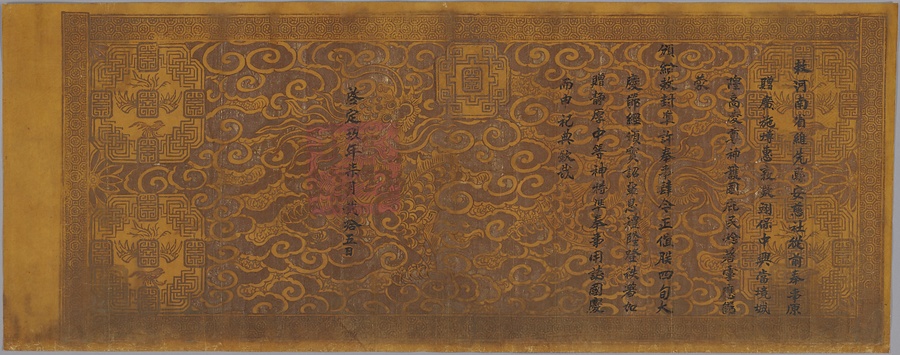 敕河南省維先縣安舊社從前奉事原
贈廣施博惠敦敏翊保中興當境城
隍高旻尊神護國庇民稔著靈應節
蒙
頒給敕封準許奉事肆今正值朕四旬大
慶節經頒寶詔覃恩禮隆登秩著加
贈敦厚中等神特準奉事用誌國慶
而申祀典欽哉
啓定玖年柒月貳拾五日